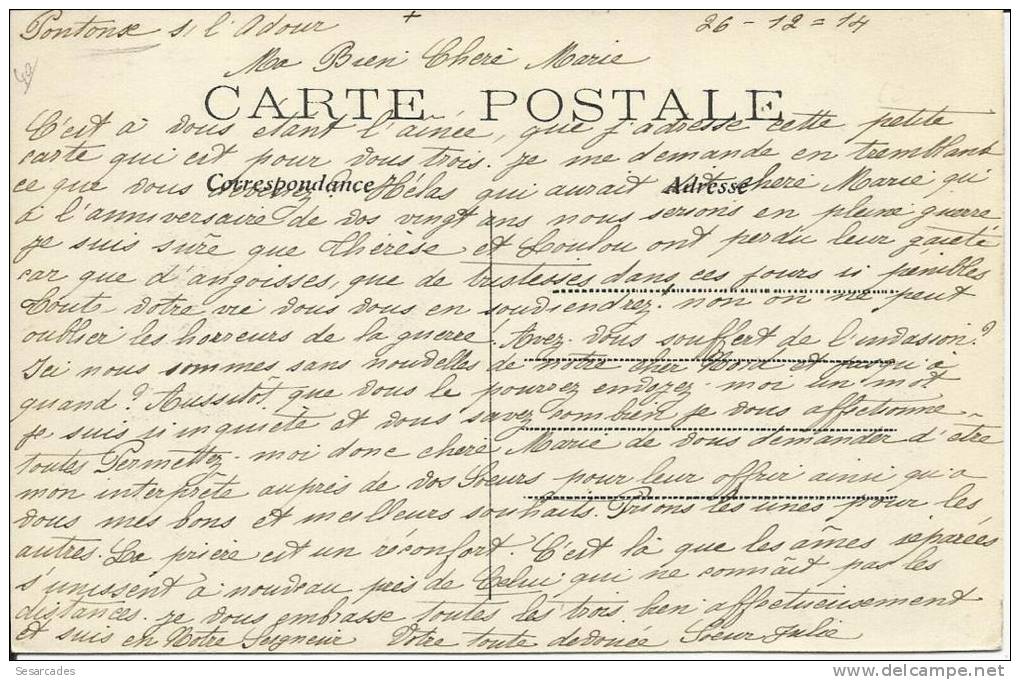 Pontonx s/ l'Adour + 26-12=14
Ma Bien Chère Marie
CARTE POSTALE
C'est à vous étant l'aînée, que j'adresse cette petite
carte qui est pour vous trois. Je me demande en tremblant
ce que vous devenez? Hélas qui aurait dit chère Marie qu'
Correspondance Adresse
à l'anniversaire de vos vingt ans nous serions en pleine guerre
je suis sûre que Thérèse et Loulou ont perdu leur gaieté
car que d'angoisses, que de tristesses dans ces jours si pénibles
Toute votre vie vous vous en souviendrez. non on ne peut
oublier les horreurs de la guerre! Avez-vous souffert de l'invasion?
Ici nous sommes sans nouvelles de notre cher Nord et jusqu'à
quand? Aussitôt que vous le pourrez envoyez-moi un mot
je suis si inquiète et vous savez combien je vous affectionne
toutes Permettez-moi donc chère Marie de vous demander d'être
mon interprète auprès de vos Soeurs pour leur offrir ainsi qu'à
vous mes bons et meilleurs souhaits. Prions les unes pour les
autres. La prière est un réconfort. C'est là que les âmes séparées
s'unissent à nouveau près de Celui qui ne connâit pas les
distances. je vous embrasse toutes les trois bien affectueusement
et suis en Notre Seigneur Votre toute dévouée Soeur Julie
Sesarcades
delcampe.net